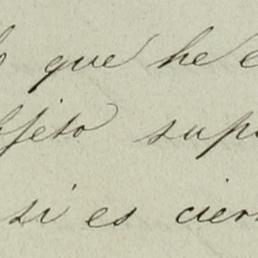 que he
jeto sup
si es cier